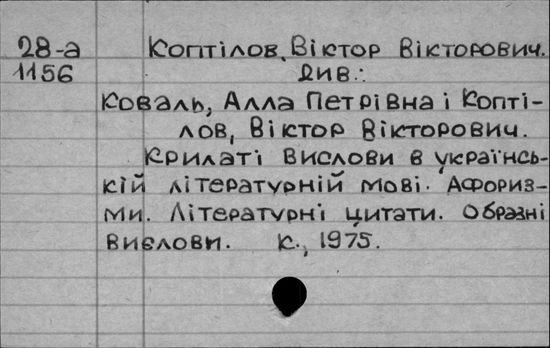 28-а Коптілов, Віктор Вікторович.
1156 Див.:
Коваль, Алла Петрівна і Копті-
лов, Віктор Вікторович.
Крилаті вислови в українсь-
кій літературній мові. Афориз-
ми. Літературні цитати. Образні
вислови. К., 1975.